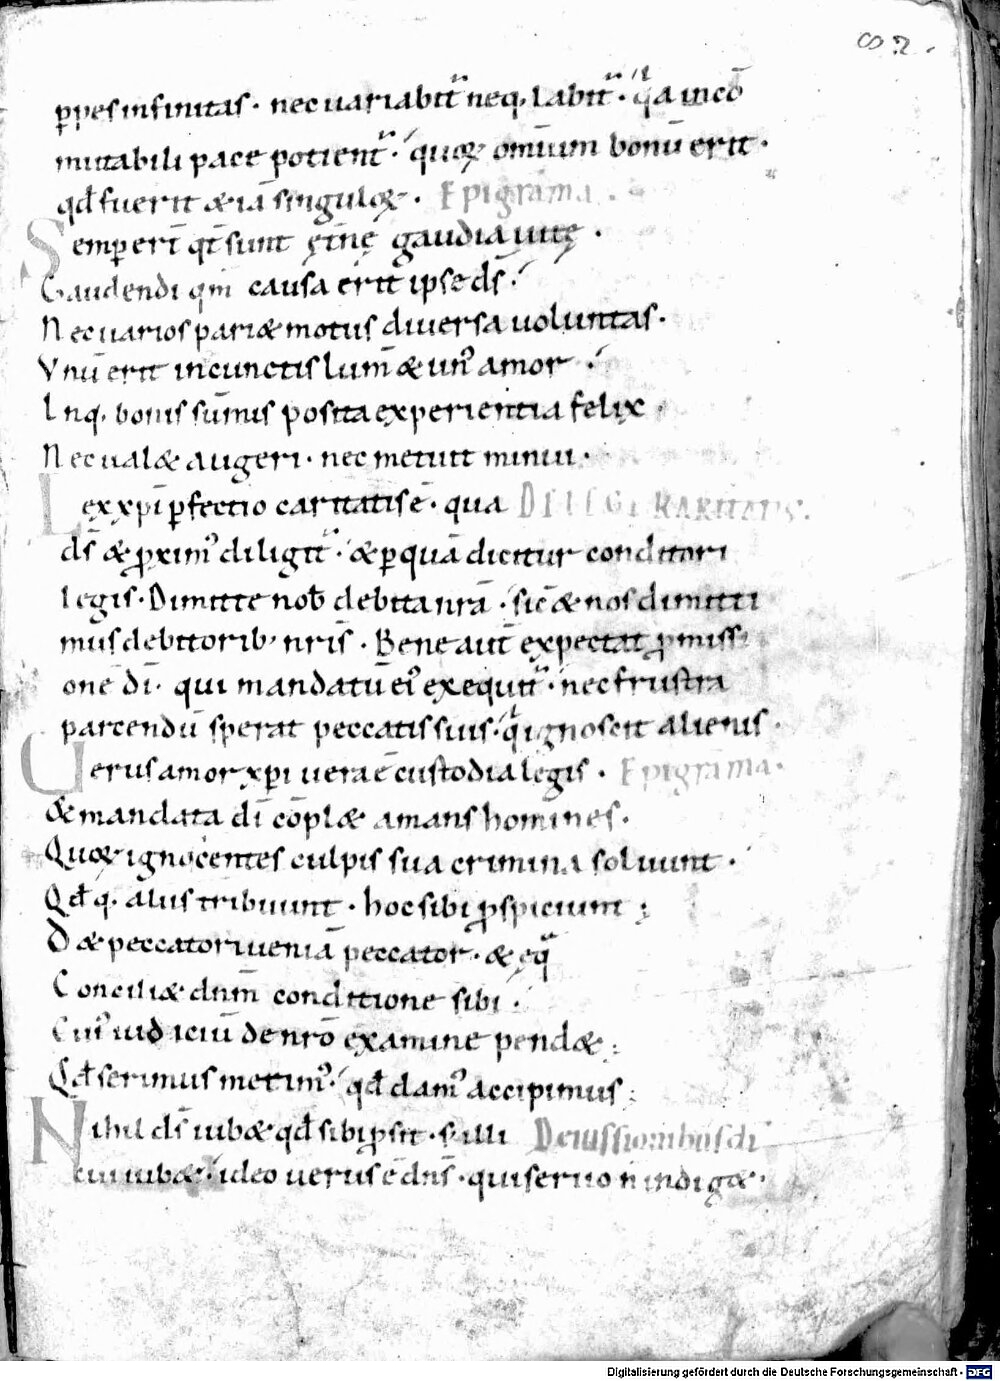 82.
ꝑpes infinitas · nec uariabit᷑ neq, Labit᷑ · q̍a incō
mutabili pace potient᷑ · quoꝝ omnium bonū erit ·
qđ fuerit &iā singuloꝝ · Epigrāma .
Semꝑ erī qī sunt ęt̄nę gaudia uitę ·
Gaudendi qm̄ causa erit ipse ds̄ ·
Nec uarios pari& motus diuersa uoluntas ·
Vnū erit in cunctis lum̄ & un᾽ amor ·
Inq, bonis sūmis posita experientia felix ·
Nec ual& augeri · nec metuit minui ·
Lex xp̄i ꝑfectio caritatis ē · qua DE LEGE KARITATIS .
ds̄ & ꝓxim᾽ diligit᷑ · & ꝑ quā dicitur conditori
legis · Dimitte nob̄ debita nr̄a · sic̄ & nos dimitti
mus debitorib᾽ nr̄is · Bene aut̄ expectat ꝓmissi
onē dī · qui mandatū ei᾽ exequit᷑ · nec frustra
parcendū sperat peccatis suis · q̍ ignoscit alienis ·
Uerus amor xp̄i uera ē custodia legis · Epigrāma ·
& mandata dī cōpl& amans homines ·
Quoꝝ ignocentes culpis sua crimina soluunt ·
Qđq, aliis tribuunt · hoc sibi ꝓspiciunt ;
D& peccatori ueniā peccator · & ęq̄
Concili& dnm̄ conditione sibi ·
Cui᾽ iudiciū de nr̄o examine pend& ;
Qđ serimus metim᾽ · qđ dam᾽ accipimus ;
Nihil ds̄ iub& qđ sibi ꝓsit · s; illi De iussionibus di
cui iub& · ideo uerus ē dn̄s · qui seruo n̄ indig& ·
Digitalisierung gefördert durch die Deutsche Forschungsgemeinschaft · DFG